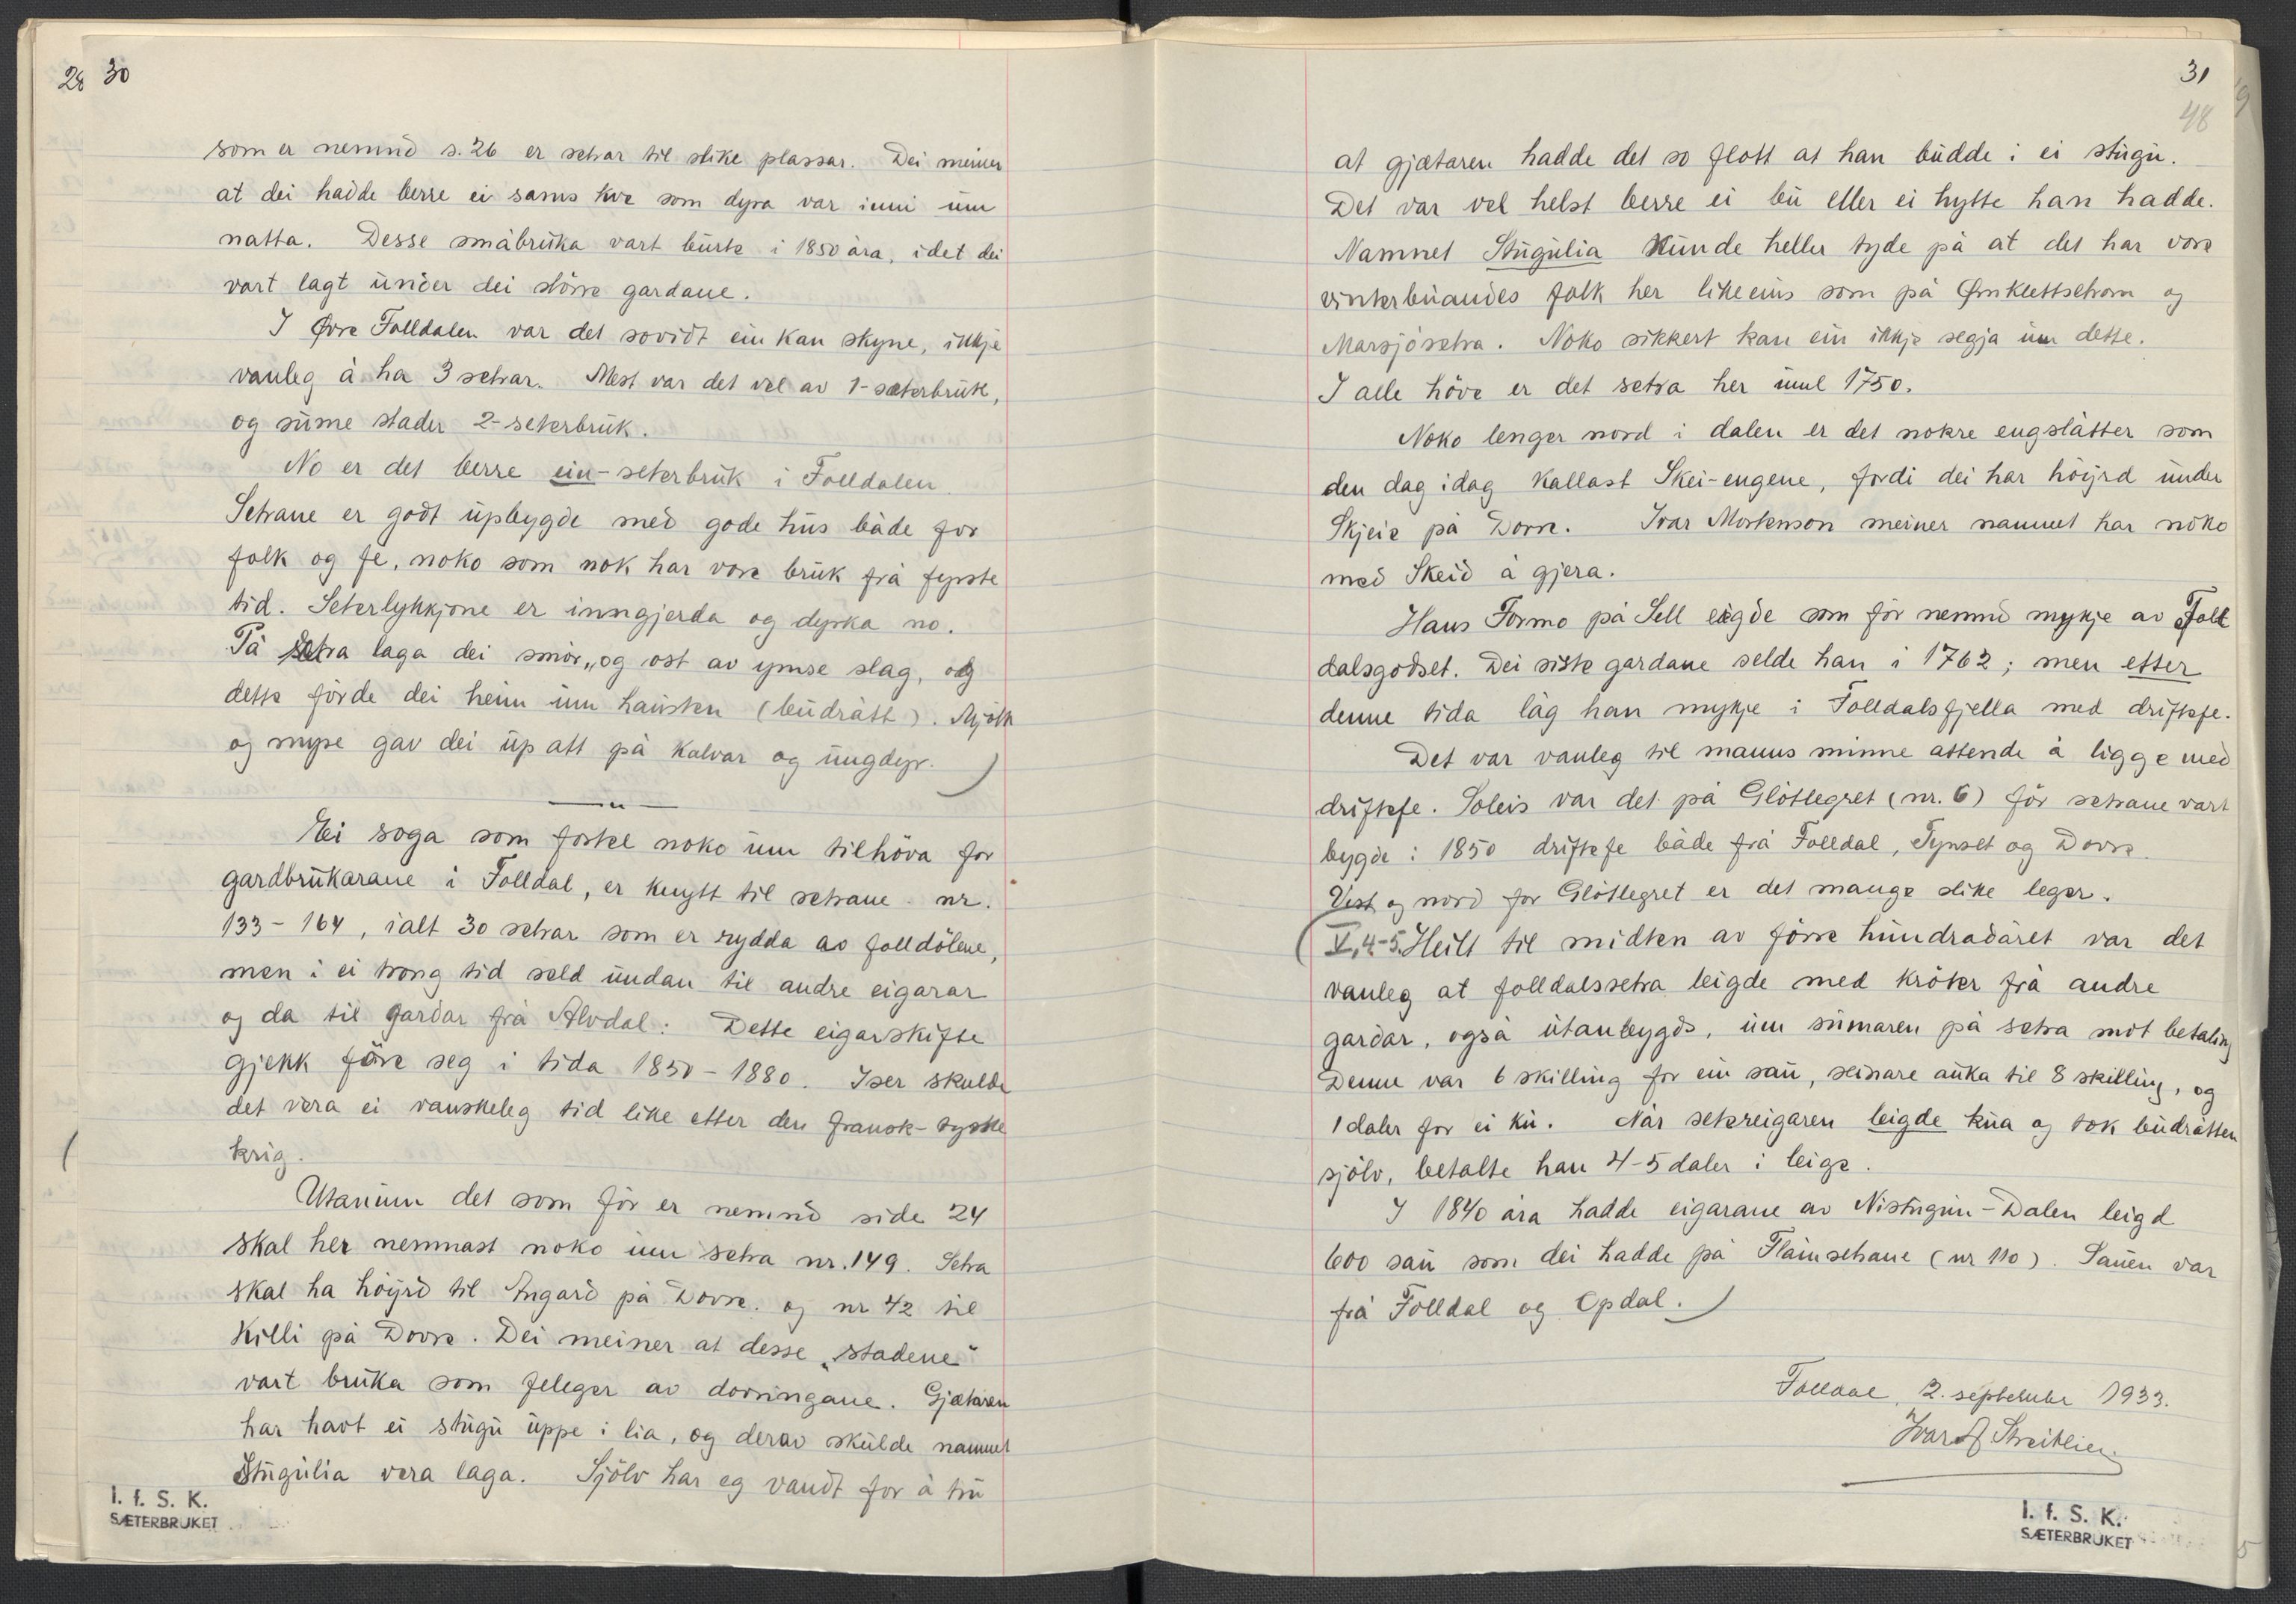 28 30
som er nemnd s. 26 er setrar til slike plassar. Dei meiner
at dei hadde berre ei sams kve som dyra var inni um
natta. Desse småbruka vart burte i 1850 åra, idet dei
vart lagt under dei större gardane.
I Övre Folldalen var det sovidt ein kan skyne, ikkje
vanleg å ha 3 setrar. Mest var det vel av 1-sæterbruk,
og sume stader 2-seterbruk.
No er det berre ein-seterbruk i Folldalen.
Setrane er godt upbygde med gode hus både for
folk og fe, noko som nok har vore bruk frå fyrste
tid. Seterlykkjone er inngjerda og dyrka no.
På setra laga dei smör, og ost av ymse slag, og
dette förde dei heim um hausten (budrått). Mjölk
og myse gav dei up att på kalvar og ungdyr. )
Ei soga som fortel noko um tilhöva for
gardbrukarane i Folldal, er knytt til setrane nr.
133-164, ialt 30 setrar som er rydda av folldölene,
men i ei trong tid seld undan til andre eigarar
og da til gardar frå Alvdal. Dette eigarskifte
gjekk före seg i tida 1850-1880. Iser skulde
det vera ei vanskeleg tid like etter den fransk-tyske
krig.
(
Utanum det som för er nemnd side 24
skal her nemnast noko um setra nr. 149. Setra
skal ha höyrd til Angard på Dovre. og nr 42 til
Killi på Dovre. Dei meiner at desse „stadene"
vart bruka som feleger av dovringane. Gjætaren
har havt ei stugu uppe i lia, og derav skulde namnet
Stugulia vera laga. Sjölv har eg vandt for å tru
I. f. S. K.
SÆTERBRUKET
31
48
at gjætaren hadde det so flott at han budde i ei stugu.
Det var vel helst berre ei bu eller ei hytte han hadde.
Namnet Stugulia kunde heller tyde på at det har vore
vinterbuandes folk her likeeins som på Örnklettsetrom og
Marsjösetra. Noko sikkert kan ein ikkje segja um dette.
I alle höve er det setra her uml 1750.
Noko lenger nord i dalen er det nokre engslåtter som
den dag idag kallast Skei-engene, fordi dei har höyrd under
Skjeie på Dovre. Ivar Mortenson meiner namnet har noko
med Skeid å gjera.
Hans Formo på Sell eigde som för nemnd mykje av Foll
dalsgodset. Dei siste gardane selde han i 1762; men etter
denne tida låg han mykje i Folldalsfjella med driftefe.
Det var vanleg til manns minne attende å ligge med
driftefe. Soleis var det på Glötlegret (nr. 6) för setrane vart
bygde i 1850 driftefe både frå Folldal, Tynset og Dovre.
Vest og nord for Glötlegret er det mange slike leger.
( V, 4-5. Heilt til midten av förre hundradåret var det
vanleg at folldalssetra leigde med kröter frå andre
gardar, også utanbygds, um sumaren på setra mot betaling
Denne var 6 skilling for ein sau, seinare auka til 8 skilling, og
1 daler for ei ku. Når setereigaren leigde kua og tok budråtten
sjölv, betalte han 4-5 daler i leige.
I 1840 åra hadde eigarane av Nistugun-Dalen leigd
600 sau som dei hadde på Flåinsetrane (nr 110). Sauen var
frå Folldal og Opdal. )
Folldal, 2. september 1933.
Ivar Streitlien.
I. f. S. K.
SÆTERBRUKET